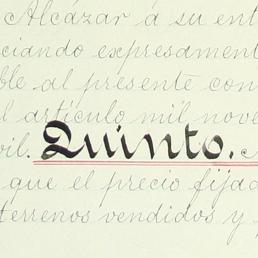 Alcázar á su ent
ciando expresament
ble al presente con
l artículo mil nove
vil. Quinto.
que el precio fijad
terrenos vendidos y